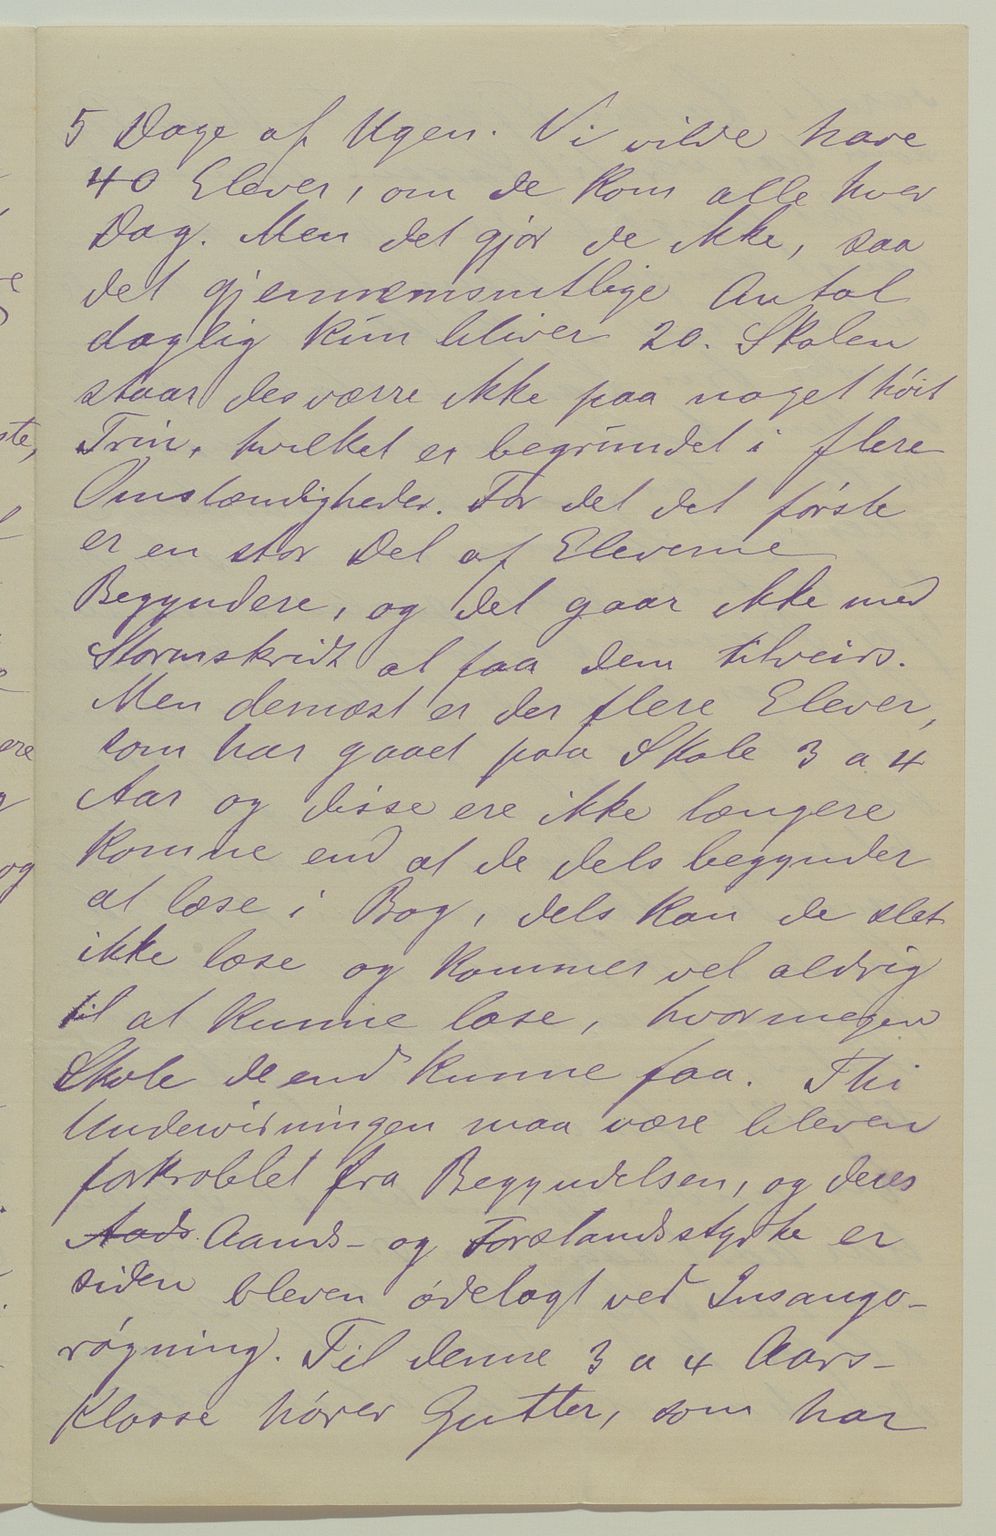 5 Dage af Ugen. Vi vilde have
40 Elever, om de kom alle hver
Dag. Men det gjør de ikke, saa
det gjennemsnitlige Antal
daglig kun bliver 20. Skolen
staar desværre ikke paa noget høit
Trin, hvilket er begrundet i flere
Omstændigheder. For det det første
er en stor Del af Eleverne
Begyndere, og det gaar ikke med
Stormskridt at faa dem tilveirs.
Men dernæst er der flere Elever,
som har gaaet paa Skole 3 a 4
Aar og disse ere ikke længere
komne end at de dels begynder
at læse i Bog, dels kan de slet
ikke læse og kommer vel aldrig
til at kunne læse, hvormegen
Skole de end kunne faa. Thi
Undervisningen maa være bleven
forkrøblet fra Begyndelsen, og deres
Aads Aands- og Forstandsstyrke er
siden bleven ødelagt ved Insango-
røgning. Til denne 3 a 4 Aars-
Klasse hører Gutter, som har
ste,
ere
og